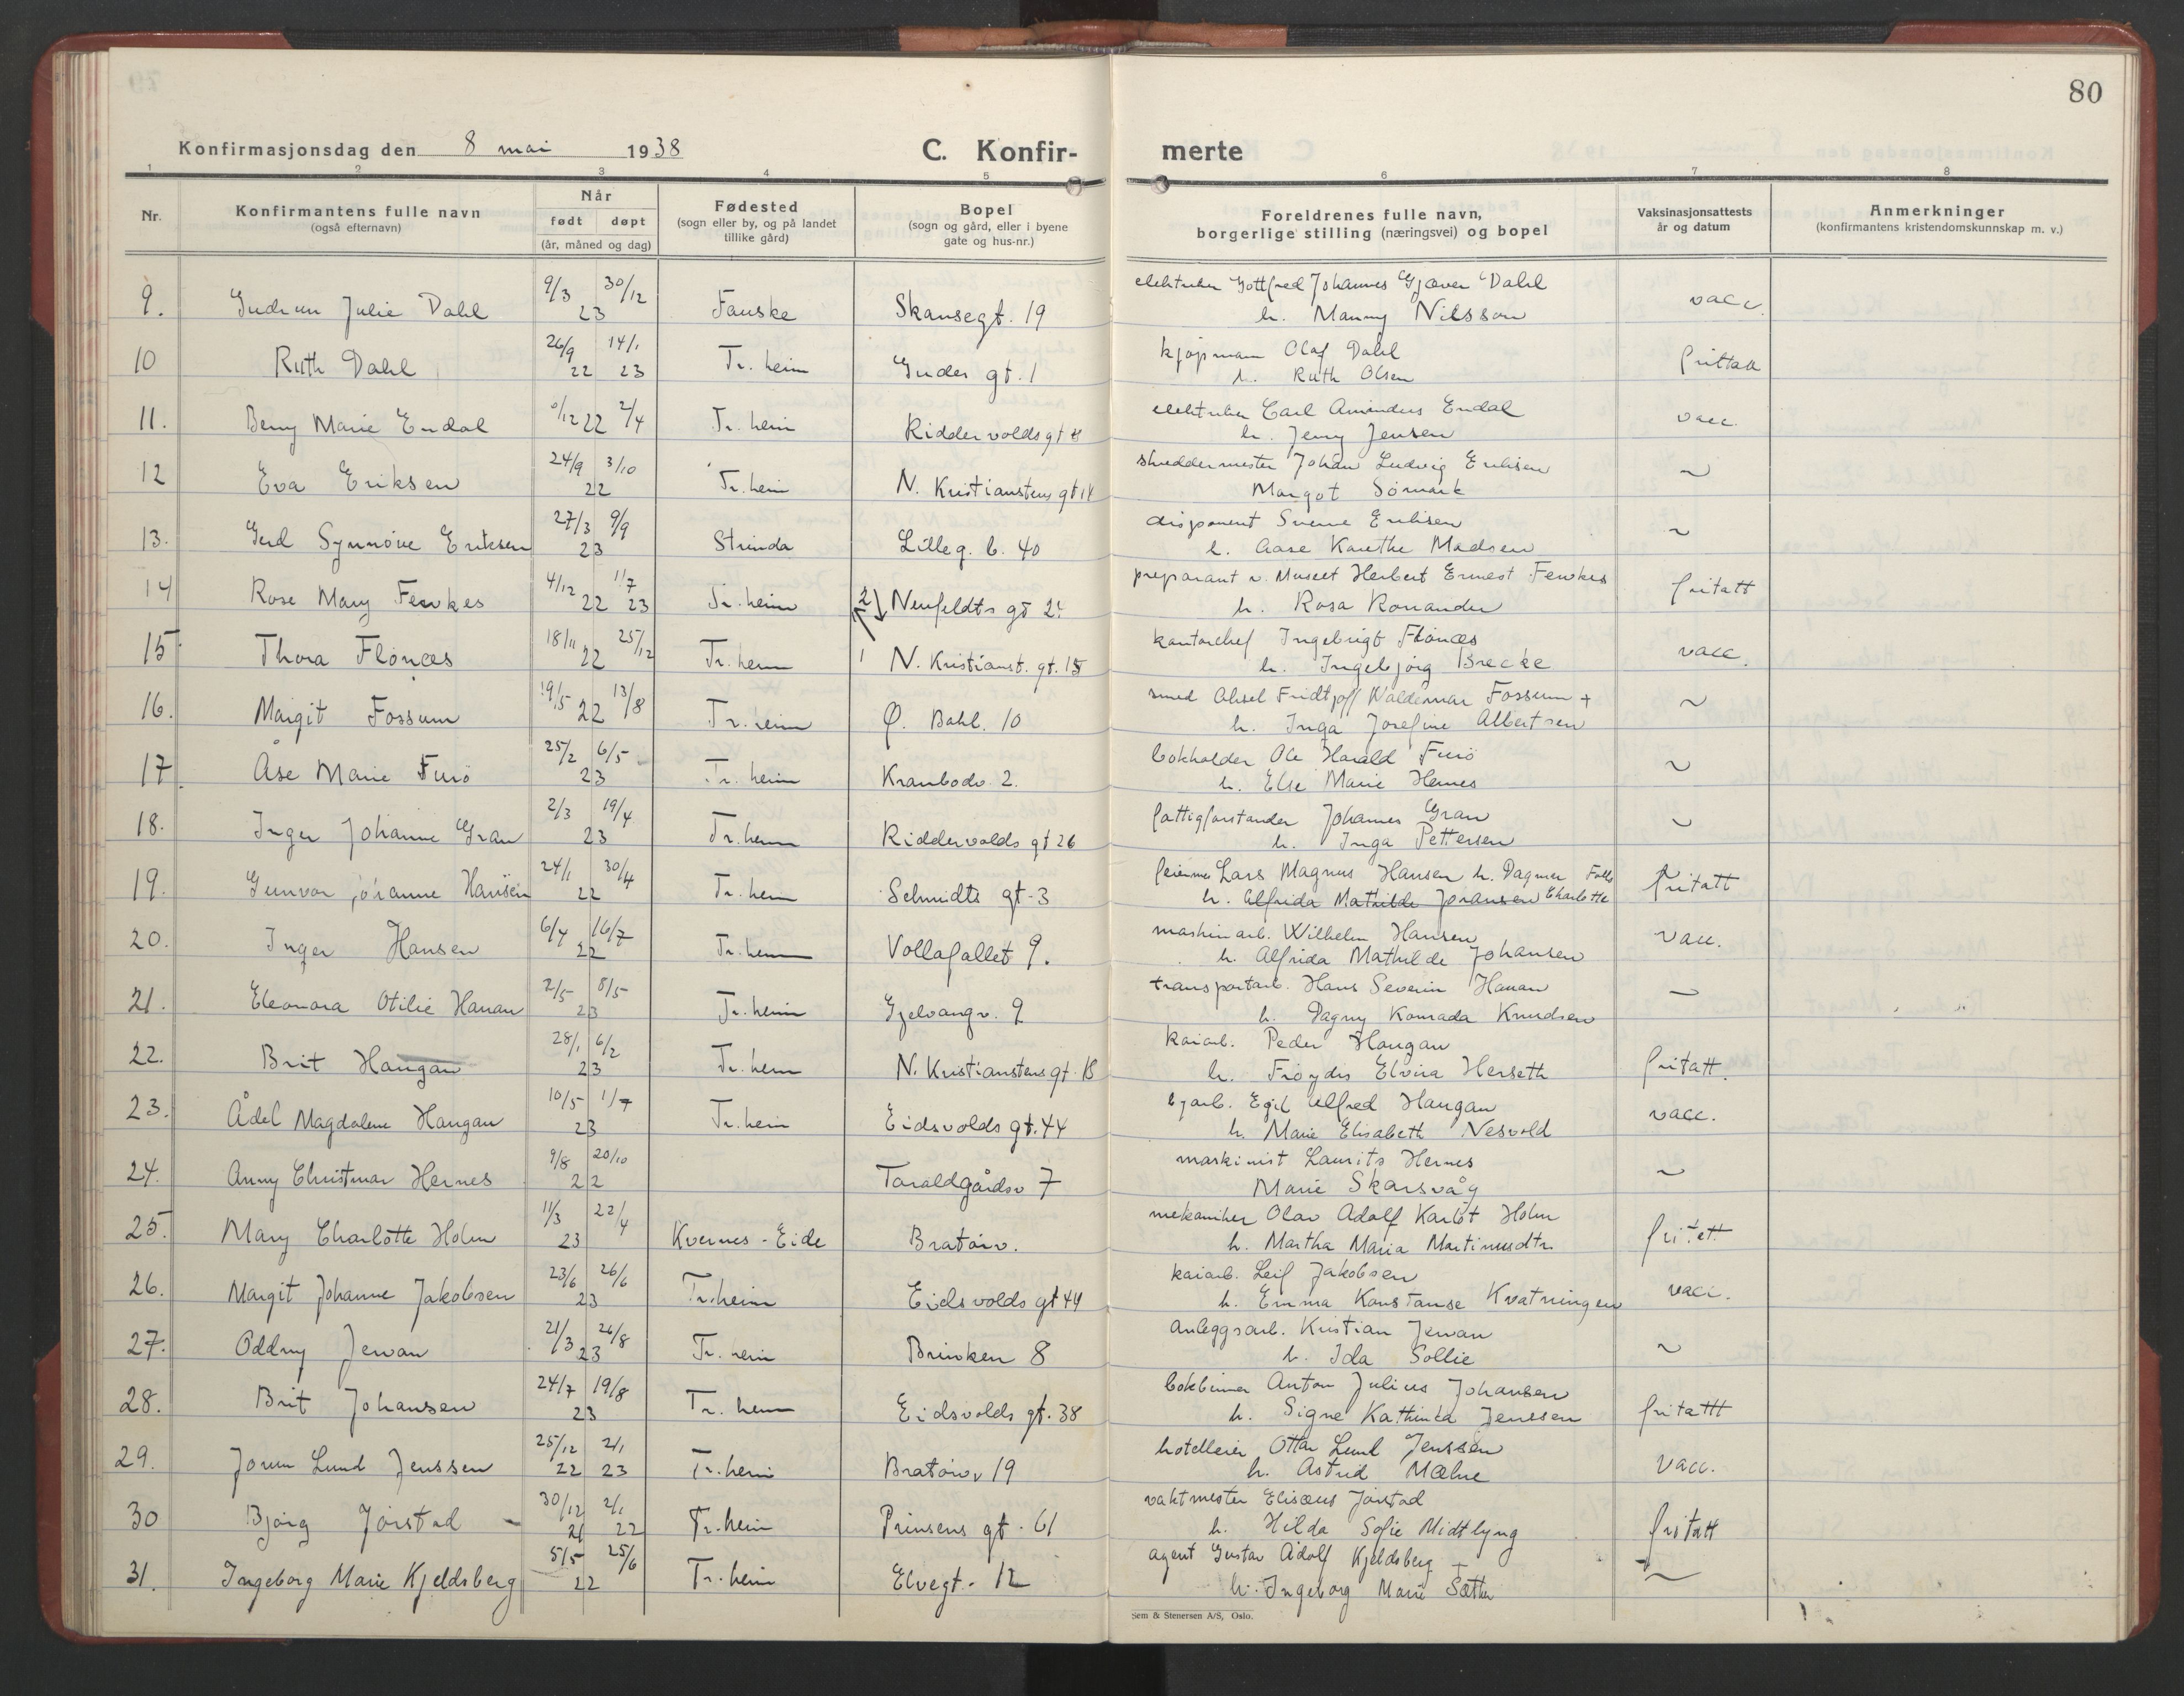 80
Konfirmasjonsdag den 8 mai 1938 C. Konfir- merte
1 2 3 4 5 6 7 8
Nr. Konfirmantens fulle navn (også efternavn) Når født døpt (år, måned og dag) Fødested (sogn eller by, og på landet tillike gård) Bopel (sogn og gård, eller i byene gate og hus-nr.) Foreldrenes fulle navn, borgerlige stilling (næringsvei) og bopel Vaksinasjonsattests år og datum Anmerkninger (konfirmantens kristendomskunnskap m. v.)
9. Gudrun Julie Dahl 9/3 30/12 23 Fauske Skansegt. 19 Gottfred Johannes Gjæver Dahl
h. Manny Nilsson vacc.
10 Ruth Dahl 26/9 22 14/1 23 Tr. heim Gudes gt. 1 kjøpmann Olaf Dahl
h. Ruth Olsen frittatt
11. Beny Marie Endal /12 22 2/4 Tr. heim Riddervoldsgt 8 Carl Amandus Endal
h. Jenny Jensen vacc.
12 Eva Eriksen 24/9 3/10 22 Tr. heim N. Kristianstens gt 14 skreddermester Johan Ludvig Eriksen
Margot Sömark ~
13. Gerd Synnöve Eriksen 27/3 9/9 23 Strinda Lilleg. b. 40 disponent Sverre Eriksen
h. Aase Karethe Madsen ~
14 Rose Mary Fewkes 4/12 22 1/7 23 Tr. heim 2) Neufeldts gt 2 preparant v. Museet Herbert Ernest Fewkes
h. Rosa Ronander fritatt
15 Thora Flönæs 18/11 25/12 22 Tr. heim 1 N. Kristianst. gt. 15 kontorchef Ingebrigt Flönæs
h. Ingebjörg Brecke vacc.
16. Margit Fossum 19/5 22 13/8 Tr. heim Ø. Bakl. 10 smed Aksel Fridtjoff Waldemar Fossum +
h. Inga Josefine Albertsen ~
17. Åse Marie Furö 25/2 6/5 23 Tr. heim Krambodv. 2. bokholder Ole Harald Furö
h. Else Marie Hernes ~
18. Inger Johanne Gran 2/3 19/4 23 Tr. heim Riddervolds gt 26 fattigforstander Johannes Gran
h. Inga Pettersen ~
19. Gunvor Johanne Hansen 24/1 30/4 22 Tr. heim Schmidts gt. 3 Lars Magnus Hansen h. Dagmar
h. Alfrida Mathilde Johansen Charlotte fritatt
20. Inger Hansen 6/4 16/7 22 Tr. heim Vollafallet 9. maskinarb. Wilhelm Hansen
h. Alfrida Mathilde Johansen vacc.
21. Eleonora Otilie Hanan 2/5 8/5 23 Tr. heim Gjelvangv. 9 transportarb. Hans Severin Hanan
h. Dagny Konrada Knudsen ~
22. Brit Haugan 28/1 6/2 23 Tr. heim N. Kristianstens gt. 18 kaiarb. Peder Haugan
h. Fröydis Elvira Herseth fritatt.
23. Ådel Magdalene Haugan 10/5 1/7 23 Tr. heim Eidsvolds gt. 44 bjarb. Egil Alfred Haugan
h. Marie Elisabeth Nesvold vacc.
24. Anny Christmar Hernes 9/8 20/10 22 Taraldgårdsv 7 maskinist Laurits Hernes
Marie Skarsvåg ~
25. Mary Charlotte Holm 11/3 22/4 23 Kvernes - Eide Bratörv. mekaniker Olav Adolf Karlot Holm
h. Martha Maria Martinusdtr. fritatt
26. Margit Johanne Jakobsen 23/6 26/6 23 Tr. heim Eidsvolds gt 44 kaiarb. Leif Jakobsen
h. Emma Konstanse Kvatningen vacc.
27. Oddny Jervan 21/3 26/8 23 Tr. heim Brinken 8 Anleggsarb. Kristian Jervan
h. Ida Sollie ~
28. Brit Johansen 24/7 19/8 23 Tr. heim Eidsvolds gt. 38 bokbinner Anton Julius Johansen
h. Signe Kathinka Jenssen fritattt
29. Jorun Lund Jenssen 25/12 22 2/1 23 Tr. heim Bratörv 19 hotelleier Ottar Lund Jenssen
h. Astrid Mæhre vacc.
30 Björg Jörstad 30/12 21 2/1 22 Tr. heim Prinsens gt. 61 vaktmester Elisæus Jörstad
h. Hilda Sofie Midtlyng fritatt
31. Ingeborg Marie Kjeldsberg 5/5 25/6 22 Tr. heim Elvegt. 12 agent Gustav Adolf Kjeldsberg
h. Ingeborg Marie Sæther ~
Sem & Stenersen A/S, Oslo.